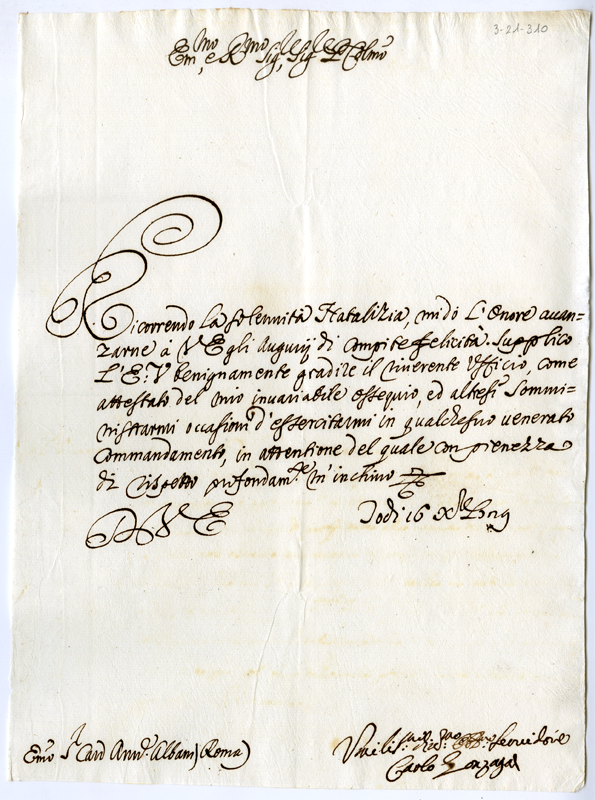 3-21-310
Em.mo e R.mo Sig.re Sig.re P. Colmo
Ricorrendo la solennità Natalizia, mi dò l'Onore auan=
zarne à V E gli Augurij di compite felicità. Supplico
L'E: V benignamente gradire il riuerente Vfficio, come
attestato del mio inuariabile essequio, ed altresi sommi=
nistrarmi occasioni d'essercitarmi in qualche suo uenerato
Commandamento, in attentione del quale con pienezza
di rispetto profondam.te m'inchino
D V E
Lodi 16 X.bre
Em.o S.r Card Ann.e Albani (Roma)
Vmiliss.mo Seruidore
Carlo Gonzaga